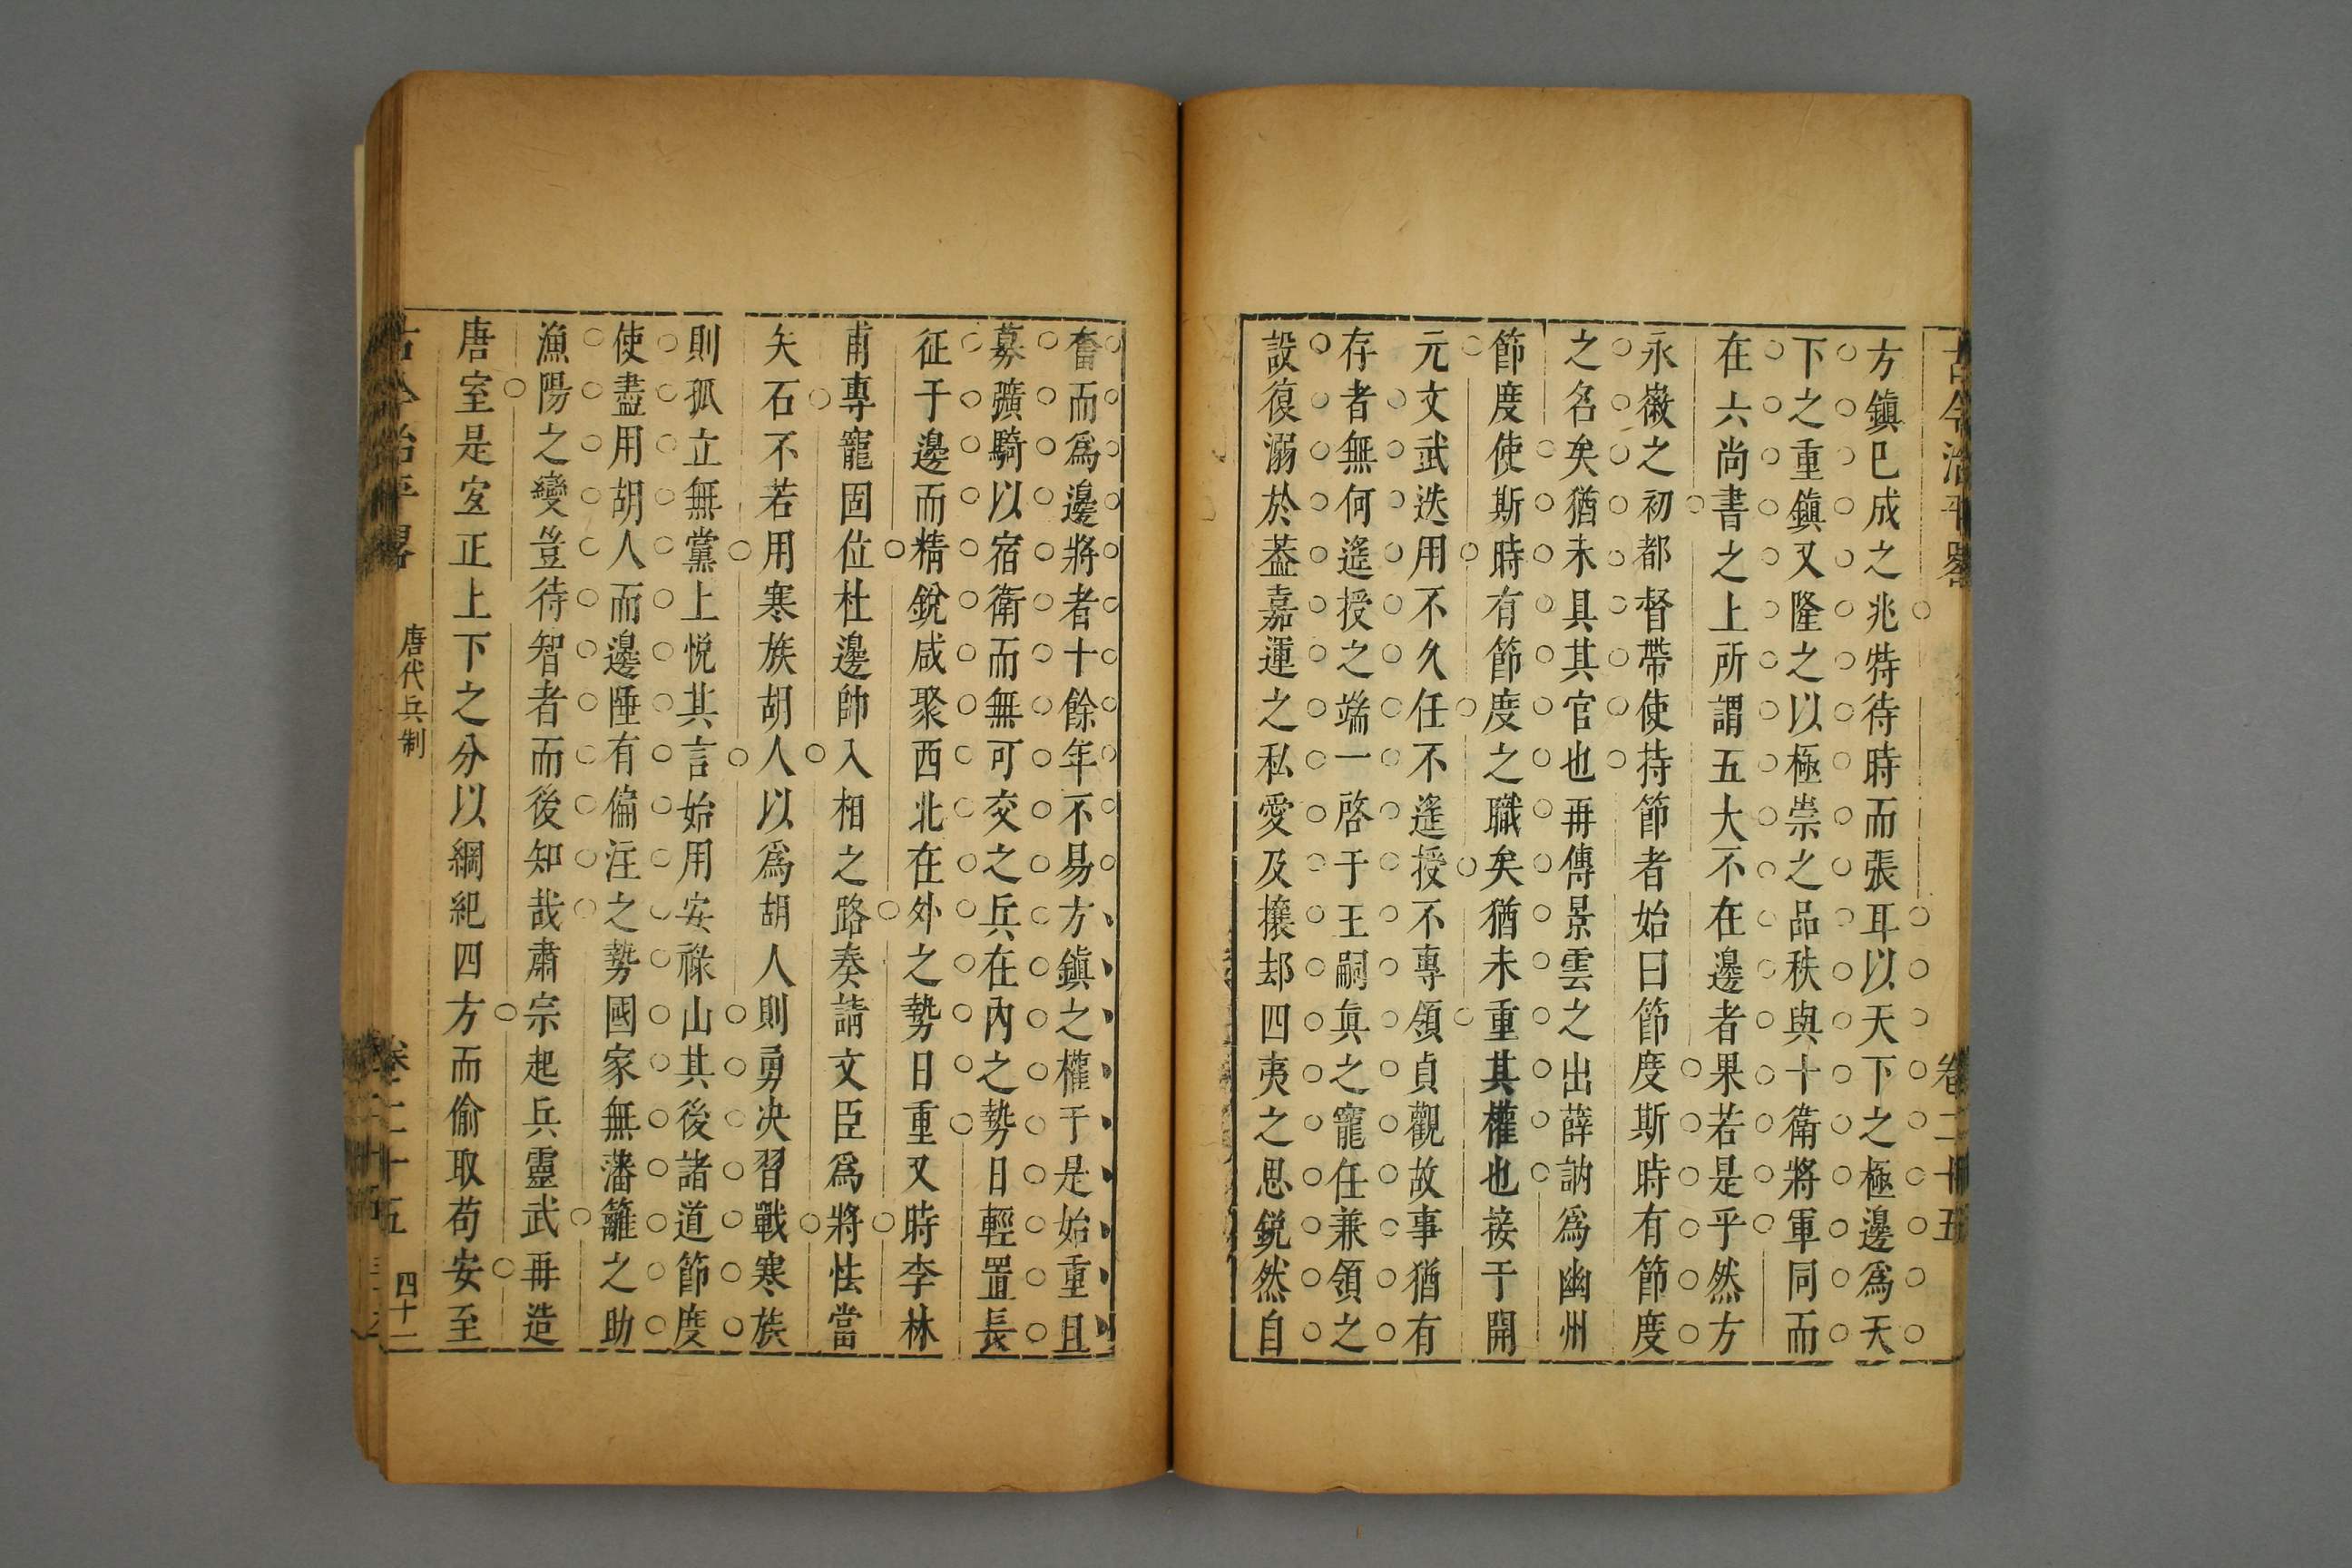 古今治平畧
卷二十五
方鎮已成之兆特待時而張耳以天下之極邊爲天
下之重鎮又隆之以極崇之品秩與十衛將軍同而
在六尚書之上所謂五大不在邊者果若是乎然方
永徽之初都督帶使持節者始曰節度斯時有節度
之名矣猶未具其官也再傳景雲之出薛訥爲幽州
節度使斯時有節度之職矣猶未重其權也接于開
元文武迭用不久任不遙授不專領貞觀故事猶有
存者無何遙授之端一啓于王嗣眞之寵任兼領之
設復溺於葢嘉運之私愛及攘却四夷之思銳然自
奮而爲邊將者十餘年不易方鎮之權于是始重且
募彍騎以宿衛而無可交之兵在內之勢日輕置長
征于邊而精銳咸聚西北在外之勢日重又時李林
甫專寵固位杜邊帥入相之路奏請文臣爲將怯當
矢石不若用寒族胡人以爲胡人則勇决習戰寒族
則孤立無黨上悅其言始用安祿山其後諸道節度
使盡用胡人而邊陲有偏注之勢國家無藩籬之助
漁陽之變豈待智者而後知哉肅宗起兵靈武再造
唐室是宜正上下之分以綱紀四方而偷取苟安至
古今治平畧
唐代兵制
卷二十五
四十一